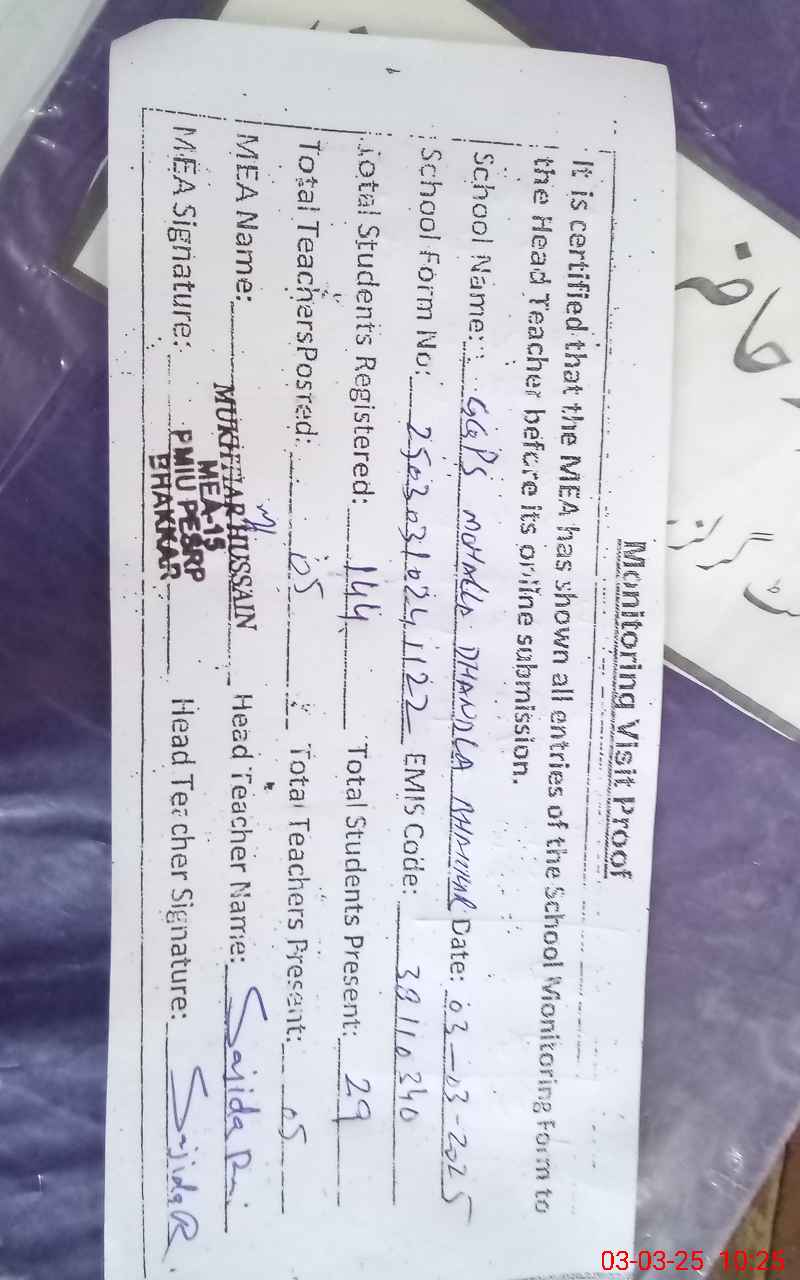 Monitoring Visit Proof
It is certified that the MEA has shown all entries of the School Monitoring Form to
the Head Teacher before its online submission.
School Name: GGPS MOHALLA DHANDLA Date: 03-03-2025
School Form No: 25030310241122 EMIS Code: 38110340
Total Students Registered: 144 Total Students Present: 29
Total Teachers Posted: 05 Total Teachers Present: 05
MEA Name: MUKHTIAR HUSSAIN Head Teacher Name: Sajida
MEA-15
PMIU PESRP
BHAKKAR
MEA Signature: Head Teacher Signature: Sajida R
حاضر
گرلز
03-03-25 10:25